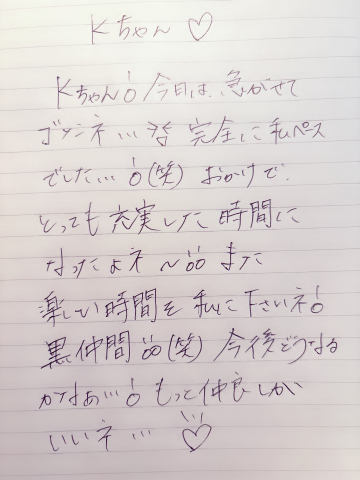 Kちゃん♡
Kちゃん!今日は、急がせて
ゴメンネ… 完全に私ペース
でした…!(笑) おかげで、
とっても充実した時間に
なったよネ〜!! また
楽しい時間を私に下さいネ!
黒仲間!!(笑) 今後どうなる
かなぁ…!もっと仲良しが
いいネ…♡